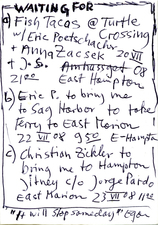 WAITING FOR
a) Fish Tacos @ Turtle
w/ Eric Poetschacher Crossing
+ Anna Zacsek 20 VII
+ J. S. 08
21 00 East Hampton
b) Eric P. to bring me
to Sag Harbor to take
Ferry to East Marion
22 VII 08 9 50 E-Hampton
c) Christian Zickler to
bring me to Hampton
Jitney c/o Jorge Pardo
East Marion 23 VII 08
"It will stop someday" Egon